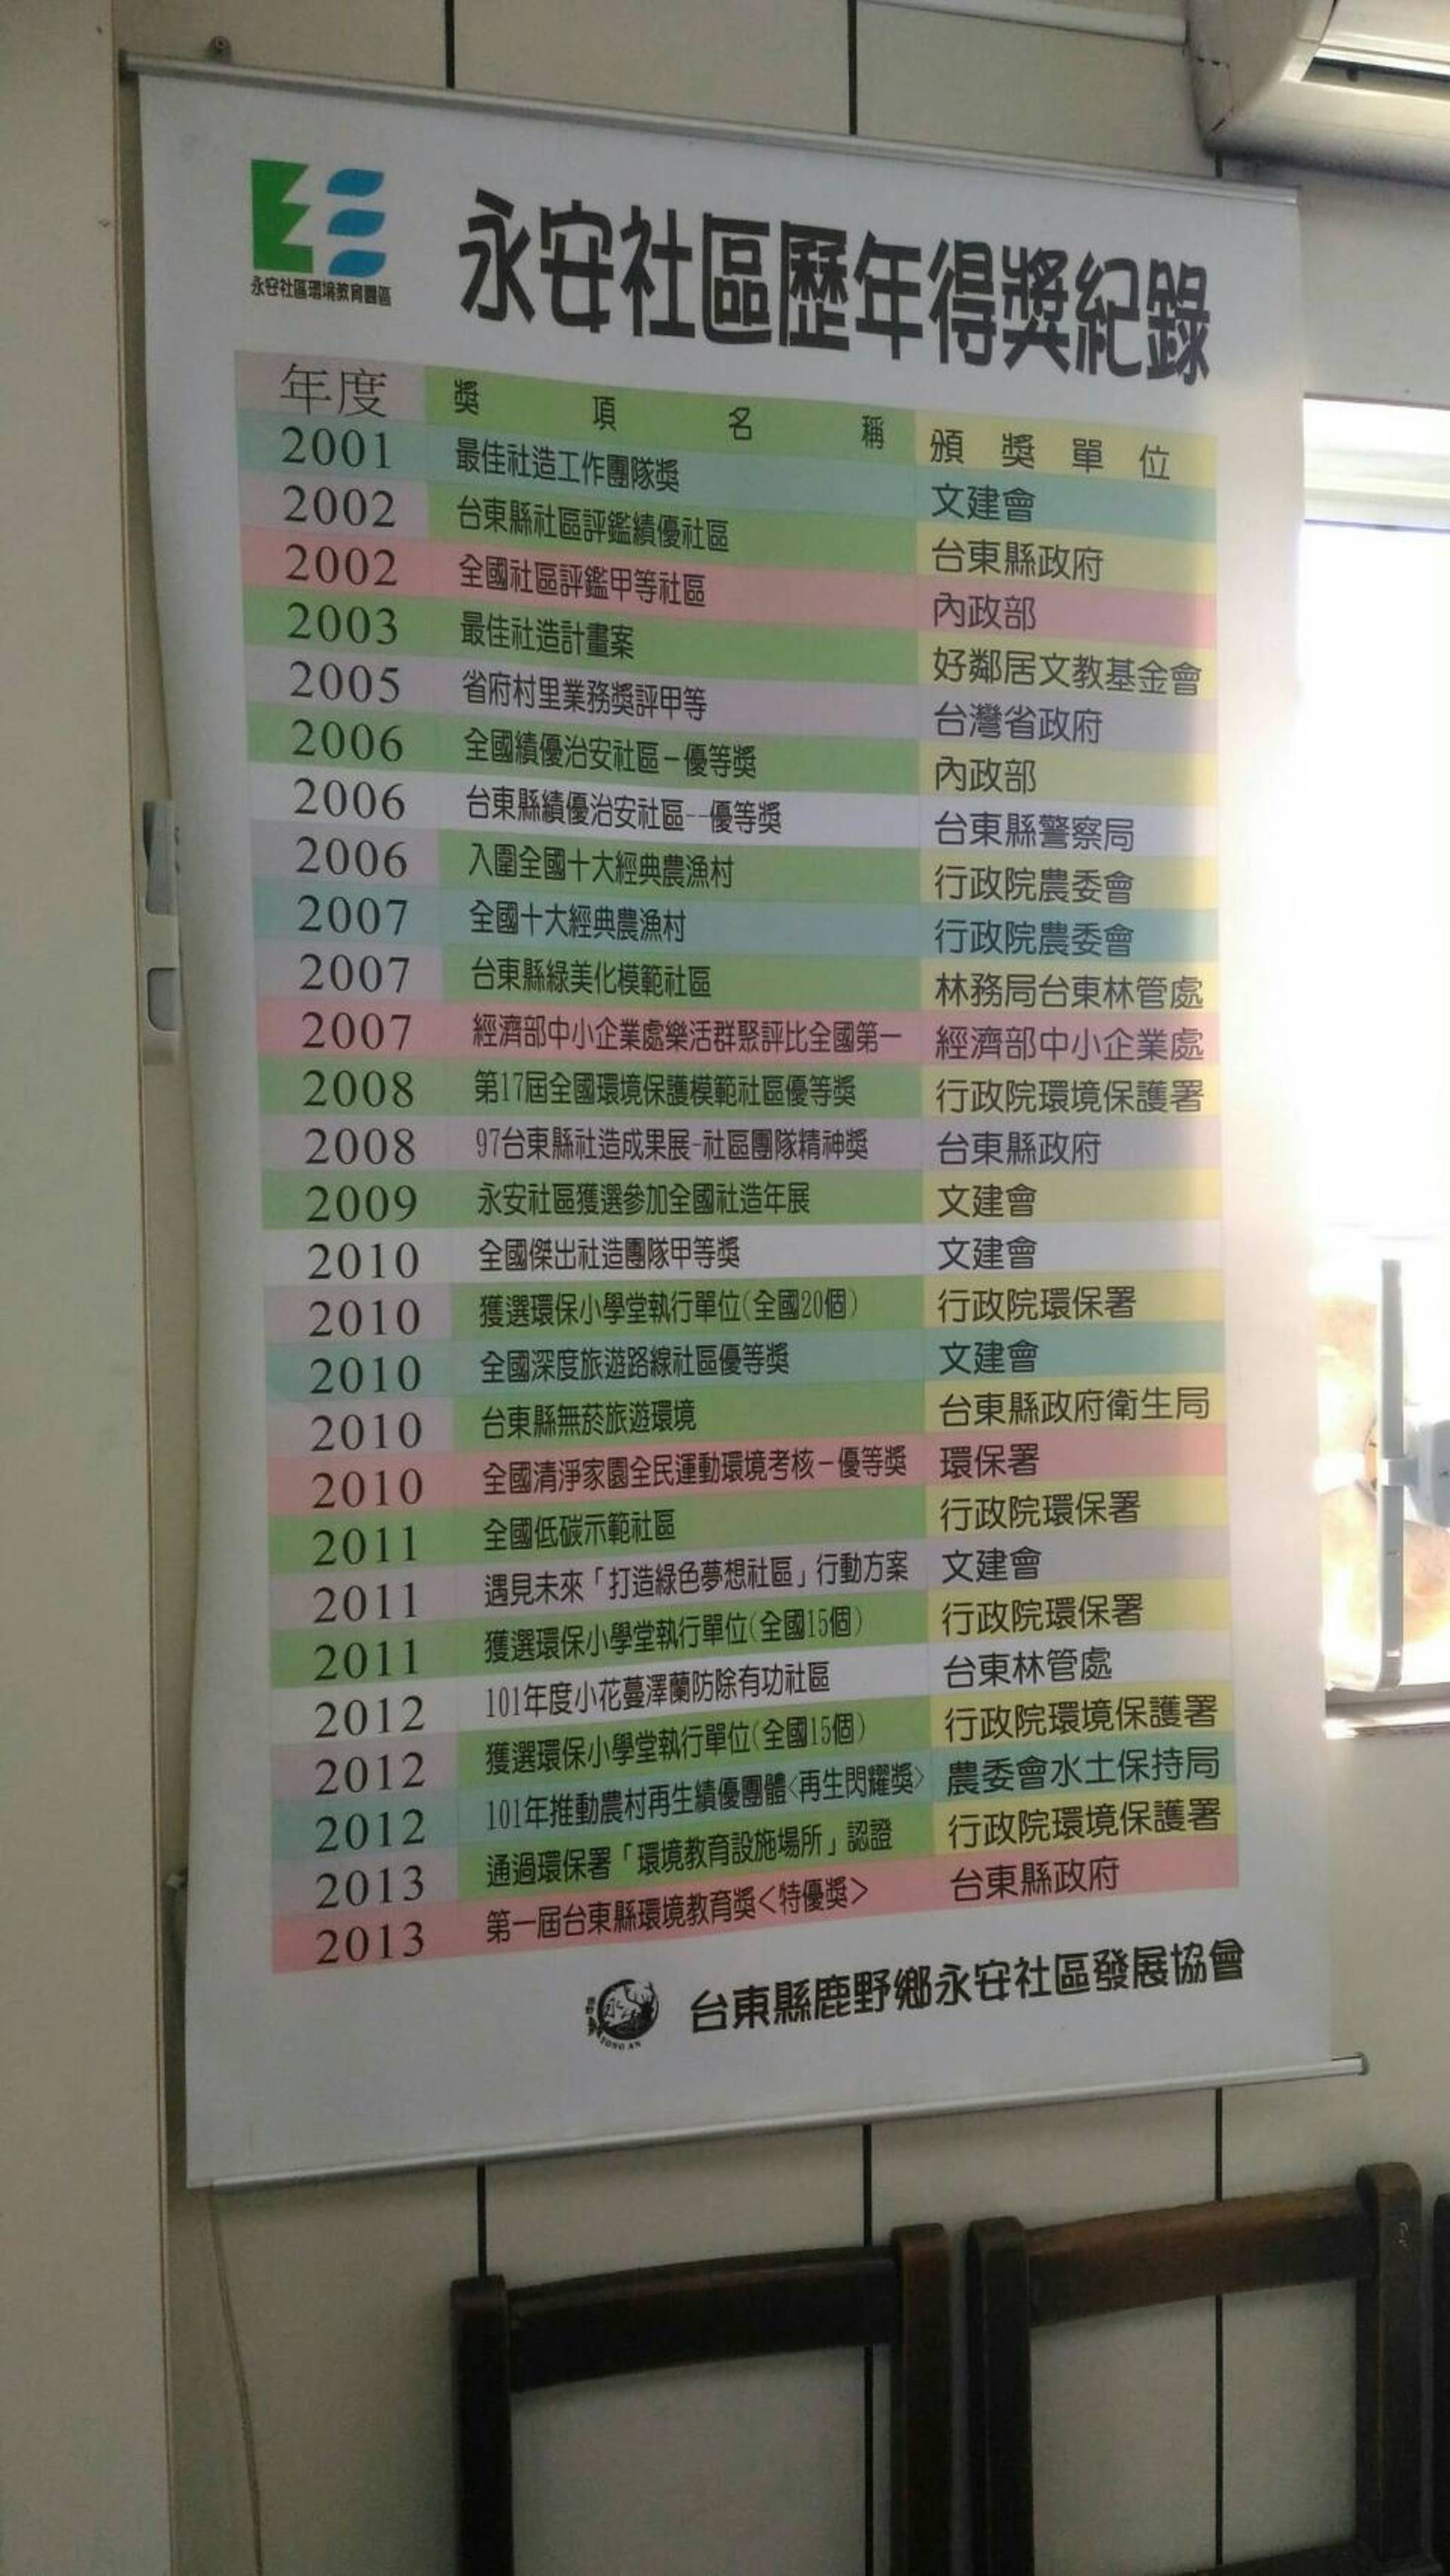 永安社區環境教育園區
永安社區歷年得獎紀錄
年度 獎項名稱 頒獎單位
2001 最佳社造工作團隊獎 文建會
2002 台東縣社區評鑑績優社區 台東縣政府
2002 全國社區評鑑甲等社區 內政部
2003 最佳社造計畫案 好鄰居文教基金會
2005 省府村里業務獎評甲等 台灣省政府
2006 全國績優治安社區－優等獎 內政部
2006 台東縣績優治安社區--優等獎 台東縣警察局
2006 入圍全國十大經典農漁村 行政院農委會
2007 全國十大經典農漁村 行政院農委會
2007 台東縣綠美化模範社區 林務局台東林管處
2007 經濟部中小企業處樂活群聚評比全國第一 經濟部中小企業處
2008 第17屆全國環境保護模範社區優等獎 行政院環境保護署
2008 97台東縣社造成果展-社區團隊精神獎 台東縣政府
2009 永安社區獲選參加全國社造年展 文建會
2010 全國傑出社造團隊甲等獎 文建會
2010 獲選環保小學堂執行單位(全國20個) 行政院環保署
2010 全國深度旅遊路線社區優等獎 文建會
2010 台東縣無菸旅遊環境 台東縣政府衛生局
2010 全國清淨家園全民運動環境考核－優等獎 環保署
2011 全國低碳示範社區 行政院環保署
2011 遇見未來「打造綠色夢想社區」行動方案 文建會
2011 獲選環保小學堂執行單位(全國15個) 行政院環保署
2012 101年度小花蔓澤蘭防除有功社區 台東林管處
2012 獲選環保小學堂執行單位(全國15個) 行政院環境保護署
2012 101年推動農村再生績優團體〈再生閃耀獎〉 農委會水土保持局
2013 通過環保署「環境教育設施場所」認證 行政院環境保護署
2013 第一屆台東縣環境教育獎＜特優獎＞ 台東縣政府
YONG AN
台東縣鹿野鄉永安社區發展協會